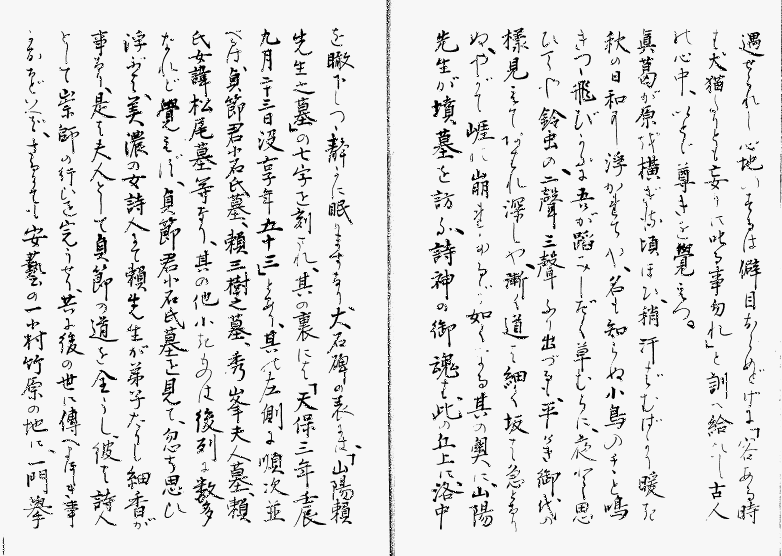 遇せられし心地いするは僻目かしめどげに「容ある時
も犬猫なりとも妄りに叱る事勿れ」と訓へ給れし古人
の心中、いとど尊きを覺えつ。
眞葛が原を横ぎる頃ほひ、稍汗ばむばかり暖な
秋の日和に浮かれてや、名も知らぬ小鳥のチヽと鳴
きつヽ飛びかふ吾が蹈みしだく草むらに、夜と思
ひてや鈴虫の二聲三聲ふり出づる、平けき御代の
樣見えて
深しや、漸く道は細く坂は急となり
ぬやがて崖に崩
如く
其の奧に山陽
先生が墳墓を訪ふ、詩神の御魂も此の丘上に洛中
を瞰下しつヽ靜かに眠りますなり大石碑の表には、「山陽頼
先生之墓」の七字を刻され、其の裏にて「天保三年壬辰
九月二十三日没享年五十三」とあり、其の左側に順次並
べは貞節君小石氏墓、頼三樹之墓、秀峯夫人墓、頼
氏女諱松尾墓等なり、其の他小
は後列に數多
なれど覺えず、貞節君小石氏墓を見て、忽ち思ひ
浮ぶは、美濃の女詩人にて頼先生が弟子なりし細香が
事なり、是は夫人として貞節の道を全うし、彼は詩人
として崇師の行ひを完うせり、共に後の世に傳へ
事
安藝の一小村竹原の地に、一門擧